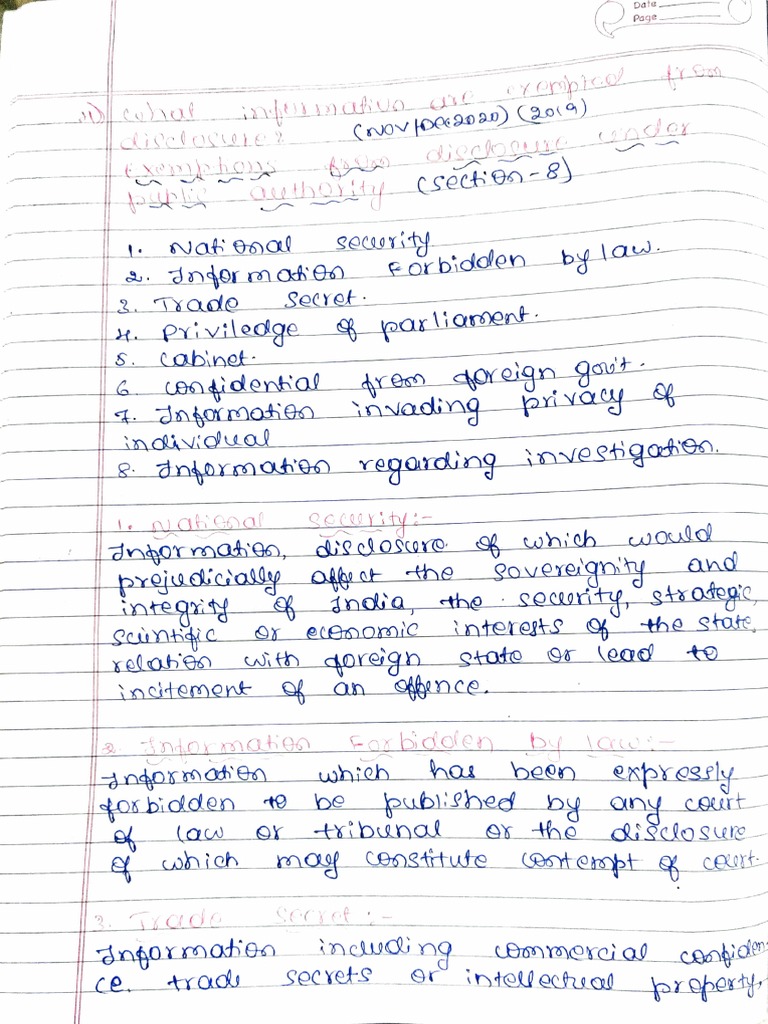 Date
Page
11) What informatiuo are exempted from
disclosure? (NOV/Dec 2020) (2019)
Exemptions from disclosure under
public authority (section-8)
1. National security
2. Information Forbidden by law.
3. Trade secret.
4. Priviledge of parliament.
5. Cabinet.
6. Confidential from foreign gov't.
7. Information invading privacy of
individual
8. Information regarding investigation.
1. National security:-
Information, disclosure of which would
prejudicially affect the sovereignity and
integrity of India, the security, strategic,
scientific or economic interests of the state,
relation with foreign state or lead to
incitement of an offence.
2. Information Forbidden by law:-
Information which has been expressly
forbidden to be published by any court
of law or tribunal or the disclosure
of which may constitute contempt of court.
3. Trade secret:-
Information including commercial confiden-
ce. trade secrets or intellectual property,